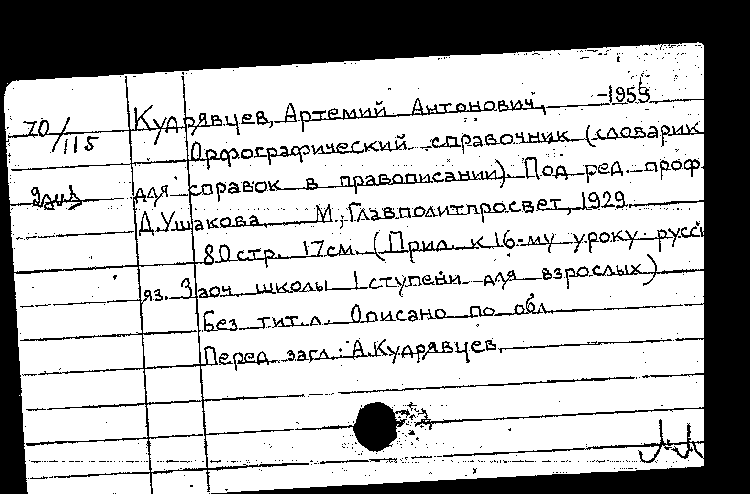 70/115
Кудрявцев, Артемий Антонович, -1955
Орфографический справочник (словарик
2 экз
для справок в правописании). Под ред. проф.
Д. Ушакова. М., Главполитпросвет, 1929.
80 стр. 17 см. (Прил. к 16-му уроку русск
яз. Заоч. школы I ступени для взрослых)
Без тит. л. Описано по обл.
Перед загл.: А. Кудрявцев.